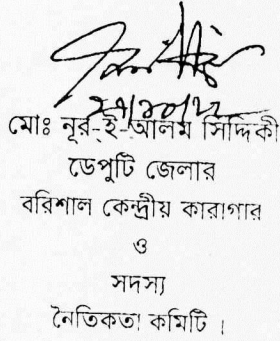 মোঃ নূর-ই-আলম সিদ্দিকী
ডেপুটি জেলার
বরিশাল কেন্দ্রীয় কারাগার
ও
সদস্য
নৈতিকতা কমিটি ।